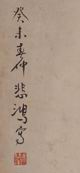 癸未春仲悲鴻寫